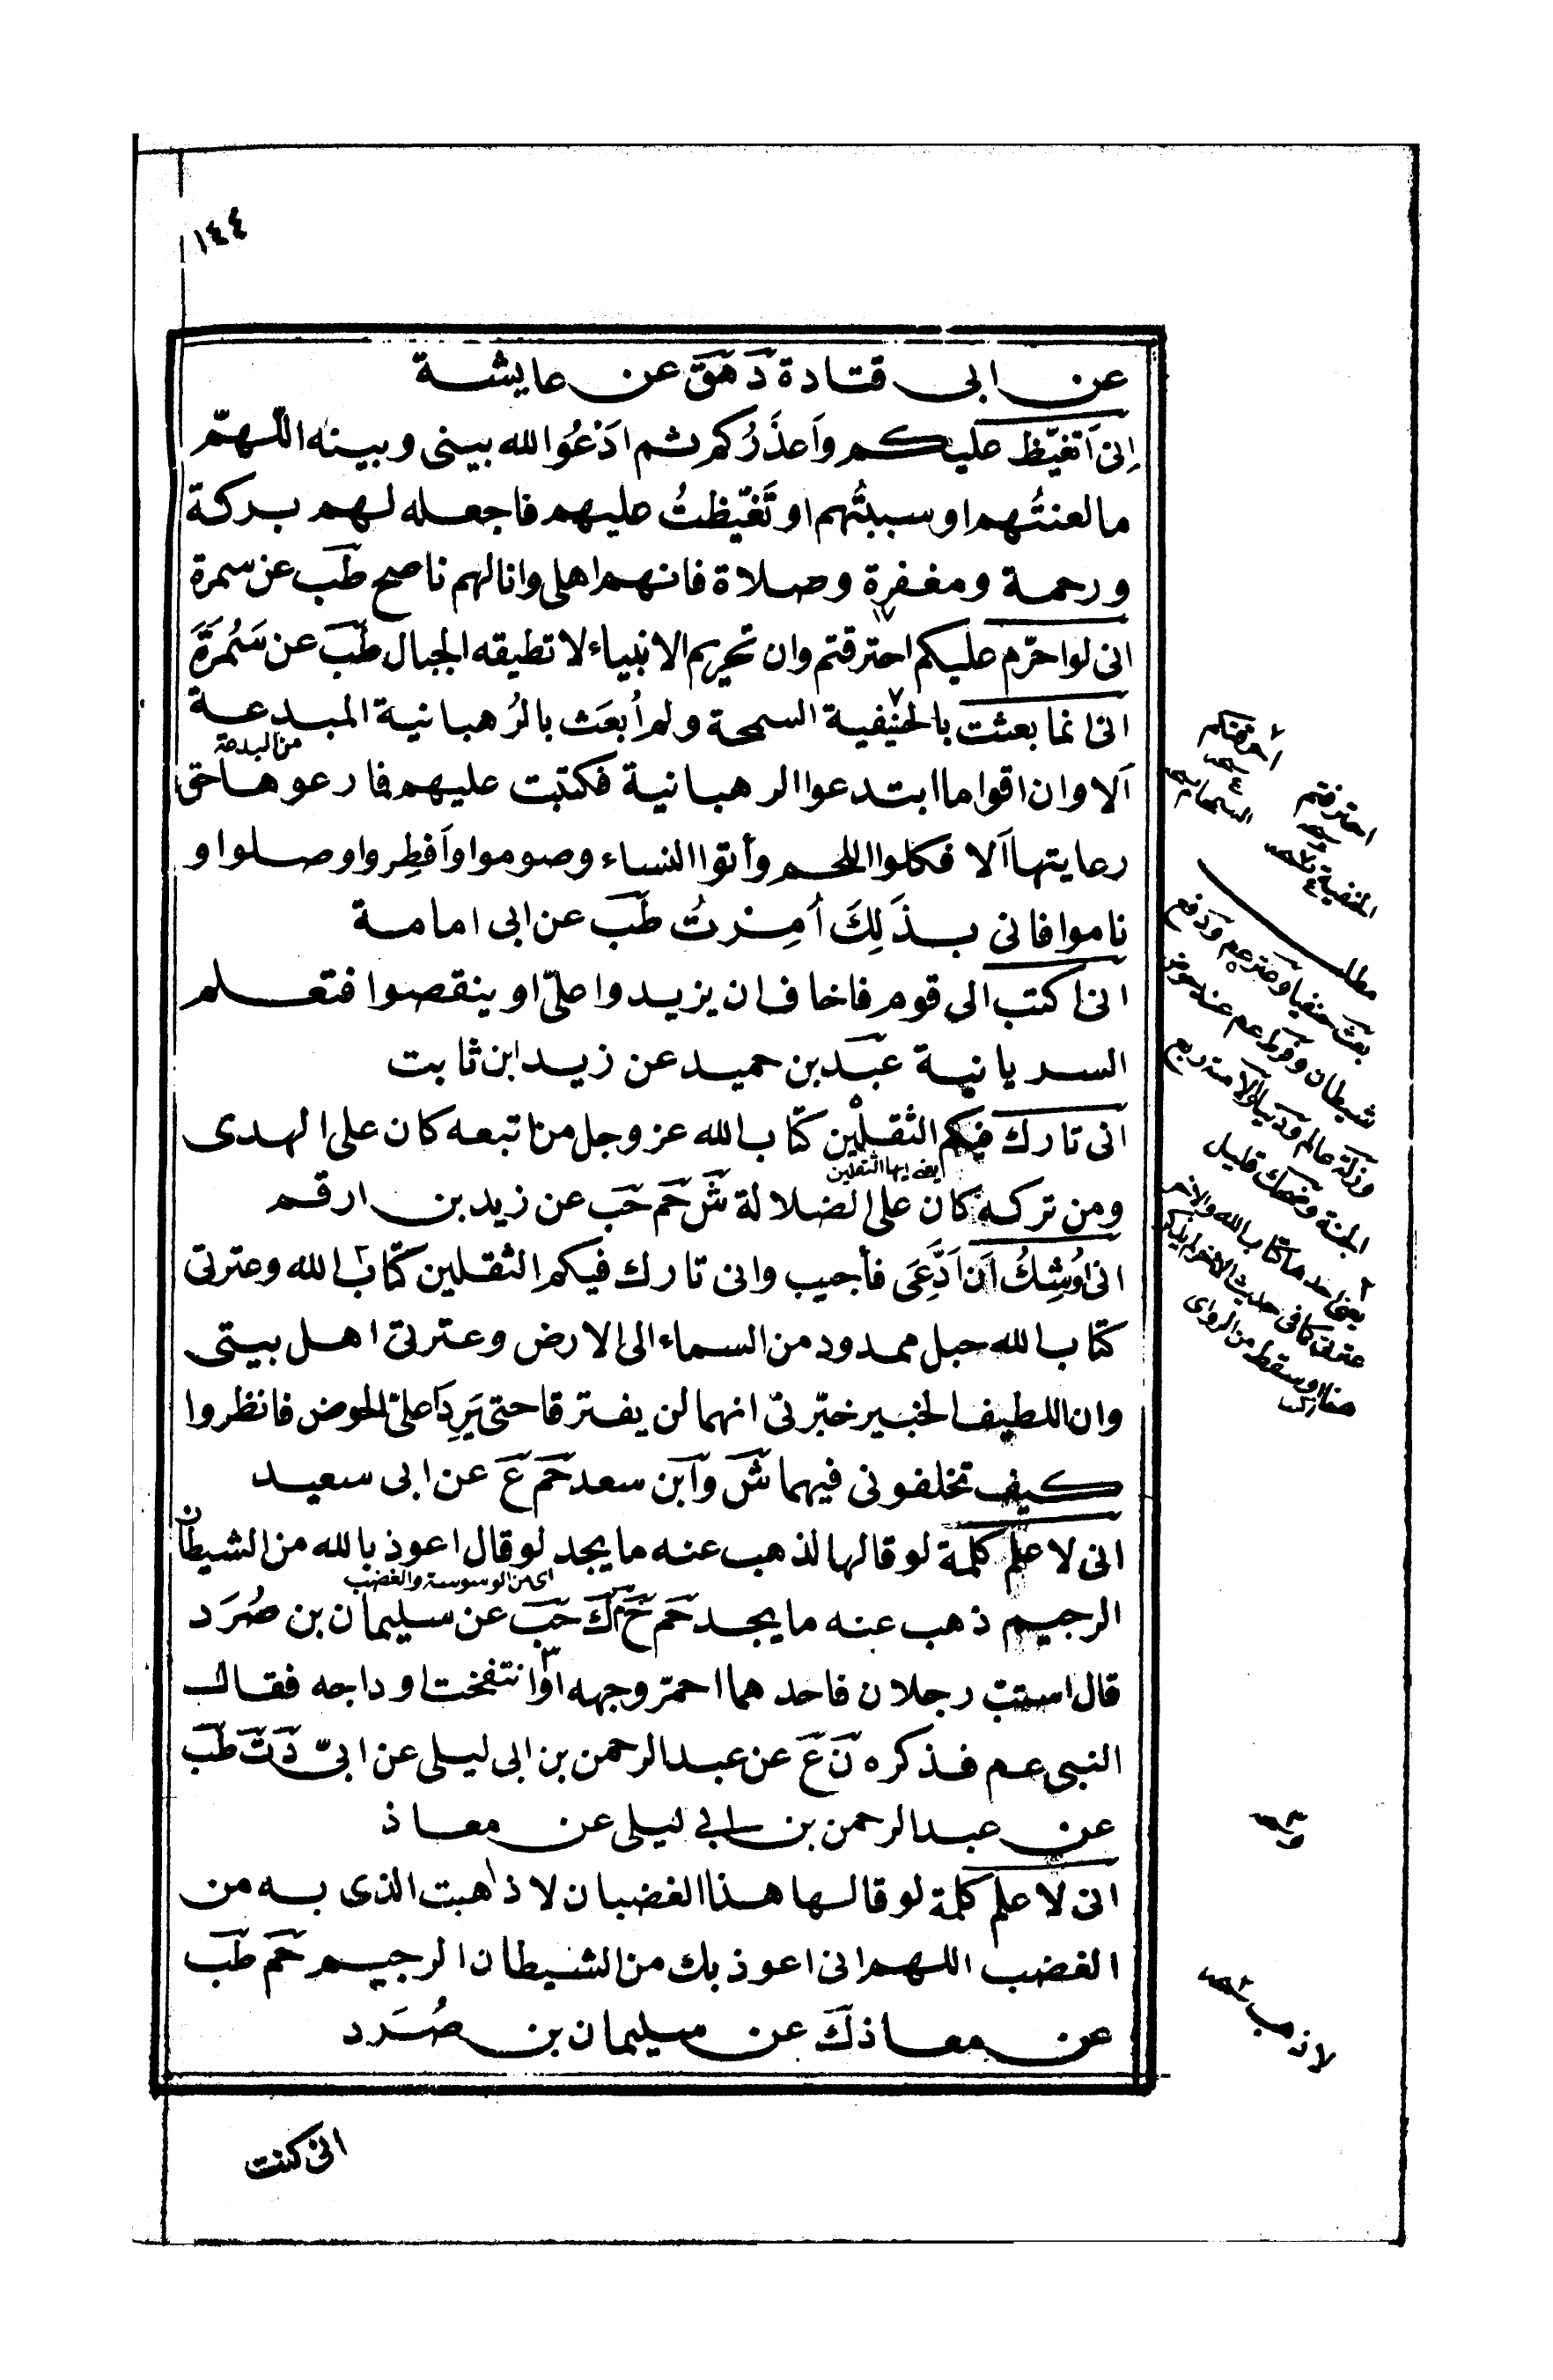 ١٤٤
عن ابى قتادة دَ هَقَ عن عايشة
اِنى اَتغيّظ عليكم واَعذَرُكم ثم ادْعُوا الله بينى وبينه اللّهمّ
ما لعنتُهم او سببتُهم او تَغيّظتُ عليهم فاجعله لهم بركة
ورحمة ومغفرة وصلاة فانهم اهلى وانا لهم ناصح طَب عن سمرة
انى لو احرّم عليكم احترقتم وان تحريم الانبياء لا تطيقه الجبال طَب عن سَمُرَةَ
انى انما بعثت بالحنيفية السمحة ولم اُبعَث بالرُهبانية المبدعة
من البدعة
اَلا وان اقواما ابتدعوا الرهبانية فكتبت عليهم فما رعوها حق
رعايتها اَلا فكلوا اللحم وأتوا النساء وصوموا واَفطِروا وصلوا و
ناموا فانى بذَلِكَ اُمِرتُ طَب عن ابى امامة
انى اكتب الى قوم فاخاف ان يزيدوا علىّ او ينقصوا فتعلم
السريانية عبَد بن حميد عن زيد ابن ثابت
انى تارك فيكم الثقلين كتاب الله عز وجل من اتبعه كان على الهدى
ايضه ايها الثقلين
ومن تركه كان على الضلالة شَ حَم حَب عن زيد بن ارقم
انى اُوشِكُ اَن اَدَّعَى فأجيب وانى تارك فيكم الثقلين كتاب الله وعترتى
كتاب الله حبل ممدود من السماء الى الارض وعترتى اهل بيتى
وان اللطيف الخبير خبّرنى انهما لن يفترقا حتى يَرِدَا علىّ الحوض فانظروا
كيف تخلفونى فيهما شَ وآبن سعد حَم عَ عن ابى سعيد
انى لاعلم كلمة لو قالها لذهب عنه ما يجد لو قال اعوذ بالله من الشيطان
اى من الوسوسة والغضب
الرجيم ذهب عنه ما يجد حَم خَ م كَ حَب عن سليمان بن صُرَد
قال استب رجلان فاحدهما احمرّ وجهه او انتفخت اوداجه فقال
النبى عم فذكره نَ عَ عن عبد الرحمن بن ابى ليلى عن ابىّ دَ تَ طَب
عن عبد الرحمن بن ابى ليلى عن معاذ
انى لاعلم كلمة لو قالها هذا الغضبان لاذاهبت الذى به من
الغضب اللهم انى اعوذ بك من الشيطان الرجيم حَم طَب
عن معاذ كَ عن سليمان بن صُرَد
احترقتم
مطلب
شيطان
الجنة وضحك قليل
يعنى احدهما كتاب الله والاخر
عترتى كما فى حديث
سقط من الراوى
لاذهب
انى كنت